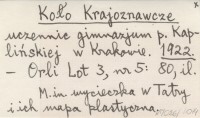 Koło Krajoznawcze
uczennic gimnazjum p. Kap-
lińskiej w Krakowie. 1922.
- Orli Lot 3, nr 5: 80, il.
M.in. wycieczka w Tatry
i ich mapa plastyczna.